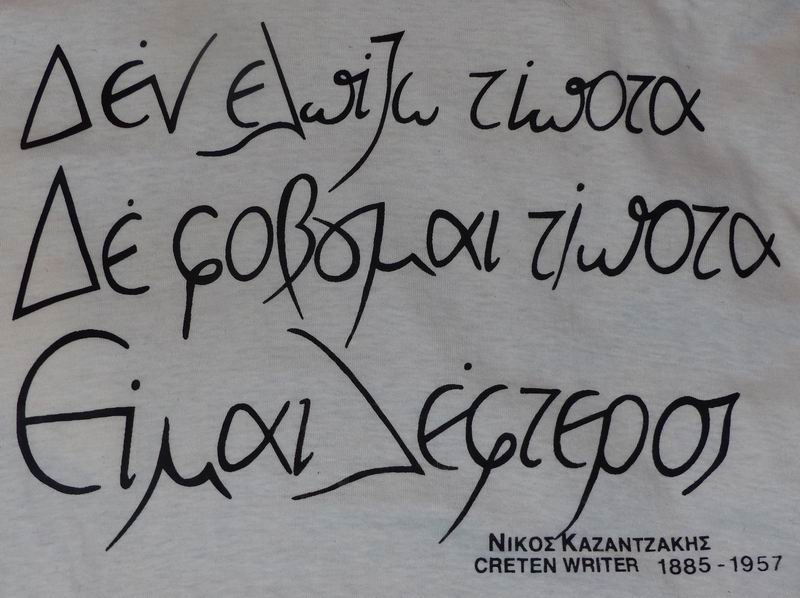 Δέν ελπίζω τίποτα
Δέ φοβȣμαι τίποτα
Είμαι λέφτερος
ΝΙΚΟΣ ΚΑΖΑΝΤΖΑΚΗΣ
CRETEN WRITER 1885-1957